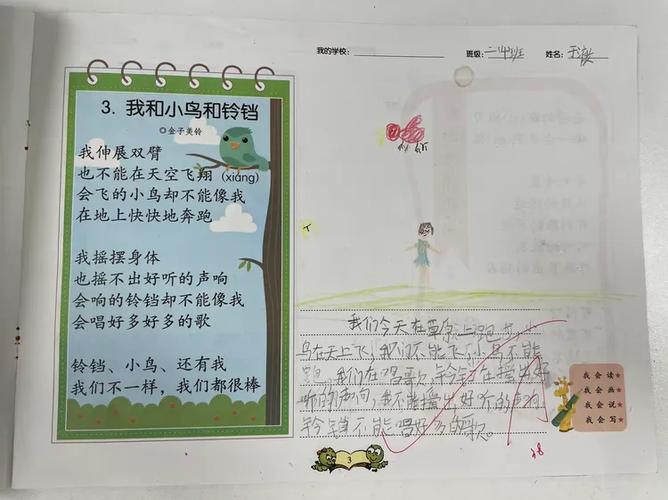 我的学校：
班级：二（4）班
姓名：
3. 我和小鸟和铃铛
◎金子美铃
我伸展双臂
也不能在天空飞翔（xiáng）
会飞的小鸟却不能像我
在地上快快地奔跑
我摇摆身体
也摇不出好听的声响
会响的铃铛却不能像我
会唱好多好多的歌
铃铛、小鸟、还有我
我们不一样，我们都很棒
我们今天在草原上跑步，小
鸟在天上飞，我们不能飞，小鸟不能
跑，我们在唱歌，铃铛在摇出好
听的声响，我不能摇出好听的声响
铃铛不能唱好多的歌。
我会读★
我会画★
我会说★
我会写★
3